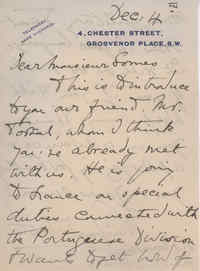 Dec. 4th
4, CHESTER STREET,
GROSVENOR PLACE, S.W.
Dear Monsieur Gomes
This is to introduce
to you our friend, Mr.
whom I think
you've already met
with us. He is going
to France on special
duties connected with
the Portuguese Division
& wants to get hold of